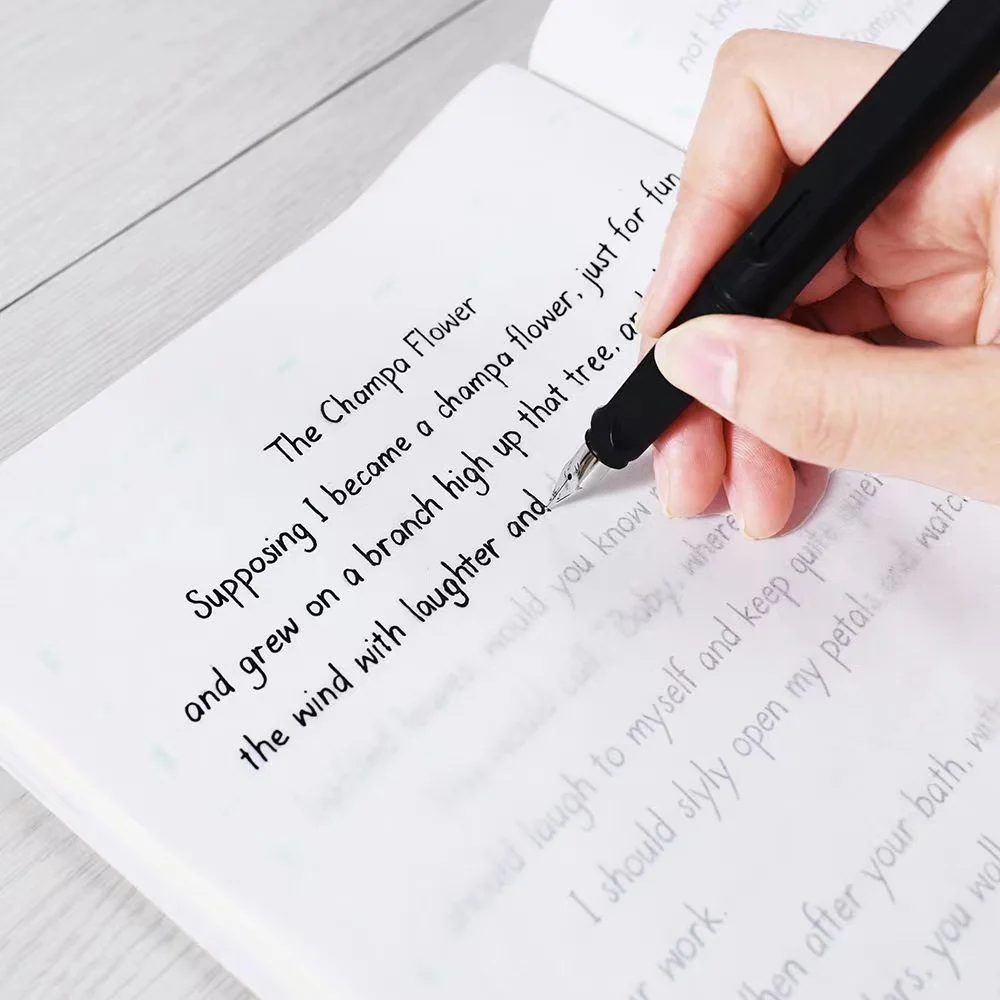 not kno
The Champa Flower
Supposing I became a champa flower, just for fun,
and grew on a branch high up that tree, an
the wind with laughter and
would you know
Baby, where
should laugh to myself and keep quite quiet
I should slyly open my petals and watch
r work.
hen after your bath, with
ers, you walk